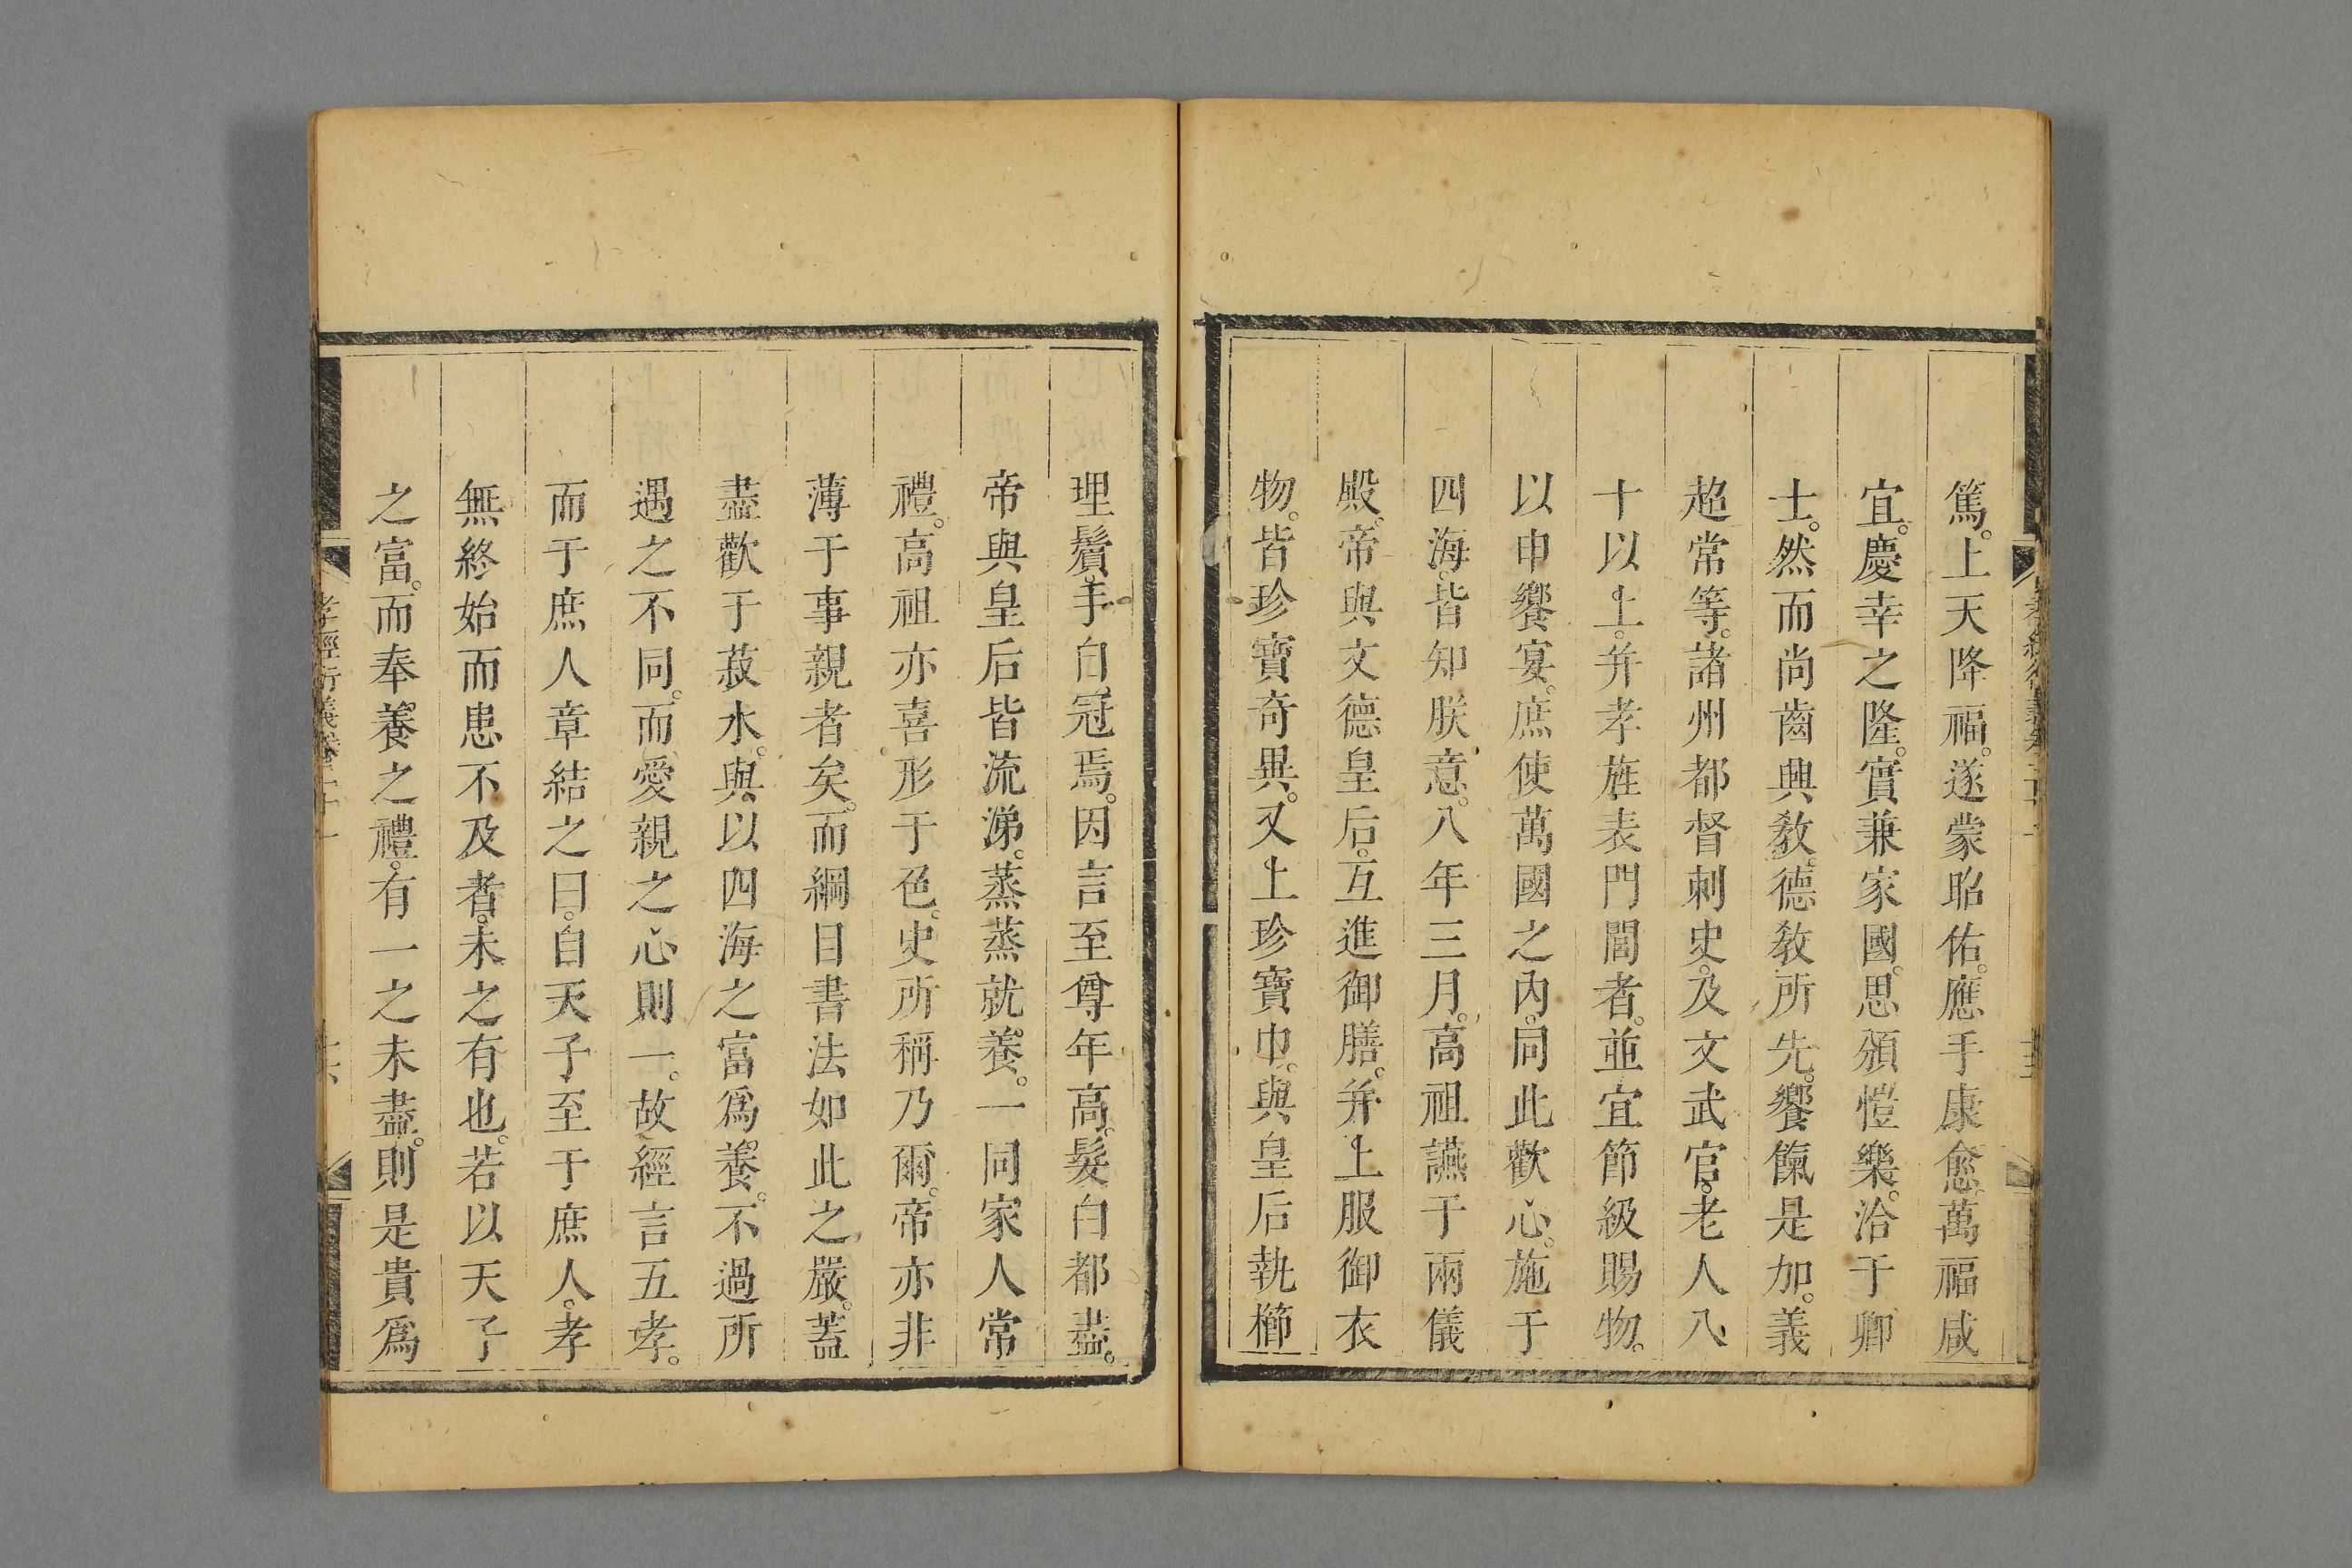 篤。上天降福。遂蒙昭佑。應手康愈。萬福咸
宜。慶幸之隆。實兼家國。思頒愷樂。洽于卿
士。然而尚齒興教。德教所先。饗餼是加。義
超常等。諸州都督刺史。及文武官。老人八
十以上。并孝旌表門閭者。並宜節級賜物。
以申饗宴。庶使萬國之內。同此歡心。施于
四海。皆知朕意。八年三月。高祖讌于兩儀
殿。帝與文德皇后。互進御膳。并上服御衣
物。皆珍寶奇異。又上珍寶巾。與皇后執櫛
理鬢。手自冠焉。因言至尊年高。髮白都盡。
帝與皇后皆流涕。蒸蒸就養。一同家人常
禮。高祖亦喜形于色。史所稱乃爾。帝亦非
薄于事親者矣。而綱目書法如此之嚴。蓋
盡歡于菽水。與以四海之富爲養。不過所
遇之不同。而愛親之心則一。故經言五孝。
而于庶人章結之曰。自天子至于庶人。孝
無終始而患不及者。未之有也。若以天子
之富。而奉養之禮。有一之未盡。則是貴爲
孝經衍義卷二十一